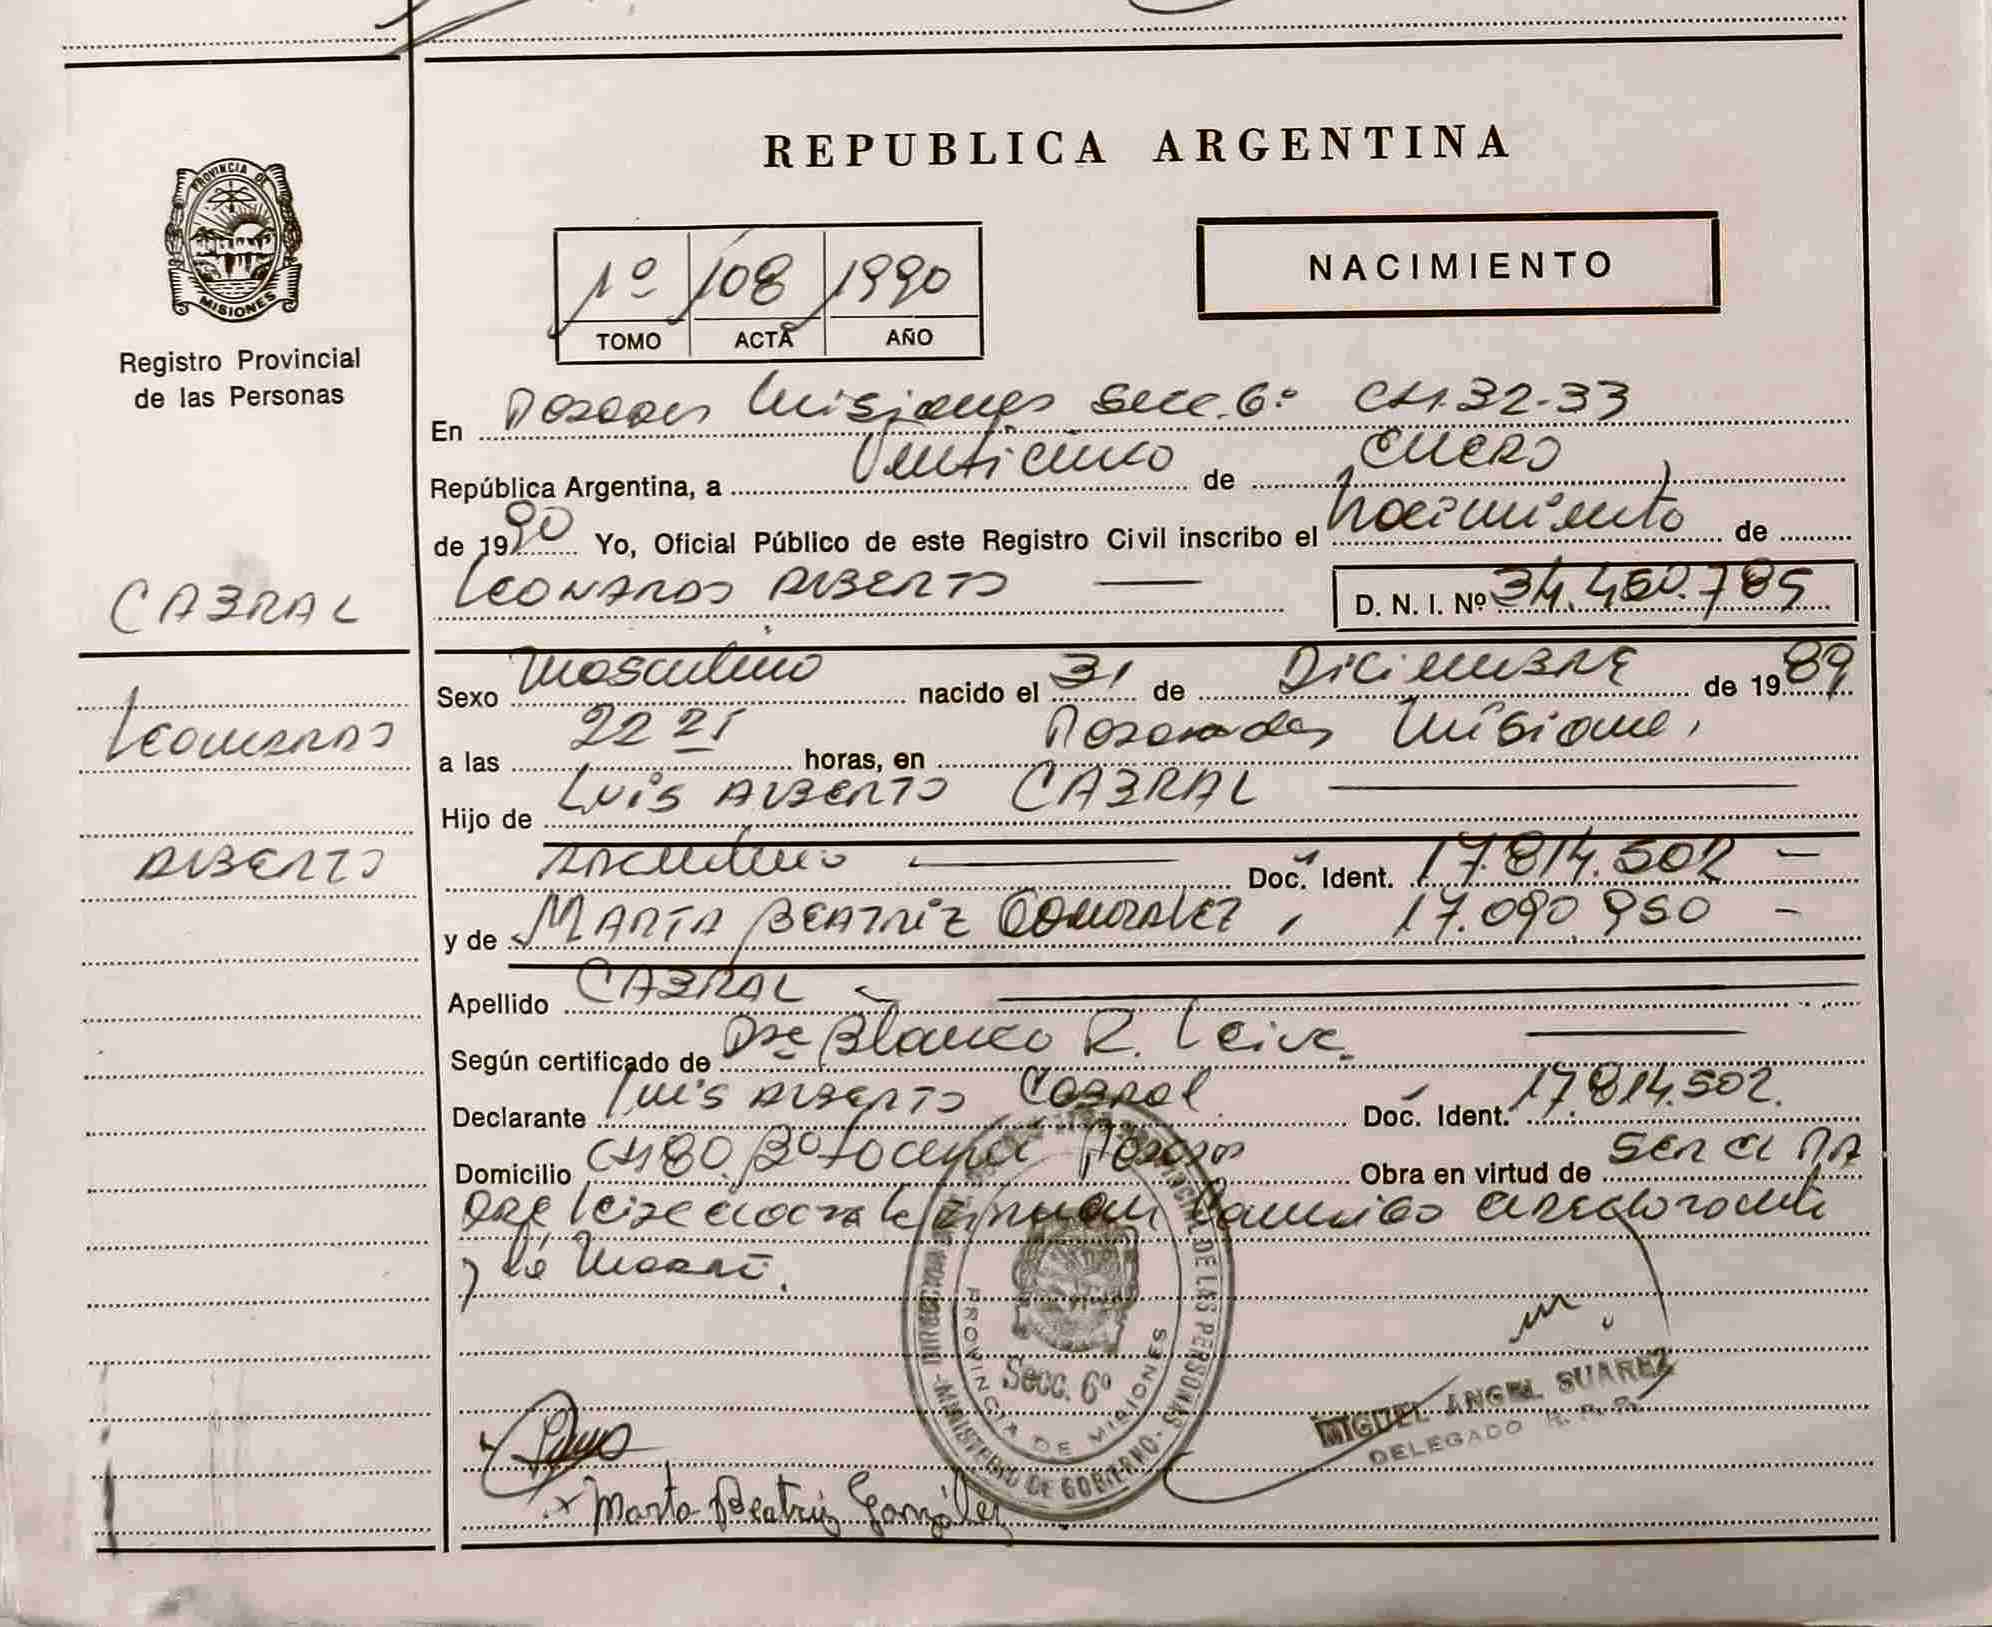 REPUBLICA ARGENTINA
PROVINCIA DE MISIONES
Registro Provincial
de las Personas
1º 108 1990
TOMO ACTA AÑO
NACIMIENTO
En Posadas Misiones Secc. 6º CH. 32-33
República Argentina, a Venticinco de Enero
de 1990 Yo, Oficial Público de este Registro Civil inscribo el Nacimiento de
CABRAL
LEONARDO ALBERTO D. N. I. Nº 34.450.785
Sexo Masculino nacido el 31 de Diciembre de 1989
Leonardo
a las 22 21 horas, en Posadas Misiones
Hijo de Luis Alberto CABRAL
Alberto
Argentino Doc. Ident. 17.814.502 -
y de MARTA BEATRIZ GONZALEZ, 17.090.950 -
Apellido CABRAL
Según certificado de Dra Blanca R. Leiva
Declarante Luis Alberto Cabral Doc. Ident. 17814.502.
Domicilio CH 80 Bº Posadas Obra en virtud de SER EL PA
DRE y la Madre.
DIRECCION PROVINCIAL DE LAS PERSONAS
MINISTERIO DE GOBIERNO
PROVINCIA DE MISIONES
Secc. 6º
MIGUEL ANGEL SUAREZ
DELEGADO R. P. P.
x Marta Beatriz González